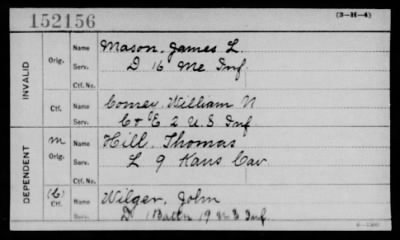 152156
(3-H-4)
INVALID
Orig. Name Mason, James L.
Serv. D 16 Me Inf
Ctf. No.
Ctf. Name Comey, William N
Serv. C & E 2 U.S Inf
DEPENDENT
M Orig. Name Hill, Thomas
Serv. L 9 Kans Cav
Ctf. No.
(C) Ctf. Name Wilger, John
Serv. D 19 Inf.